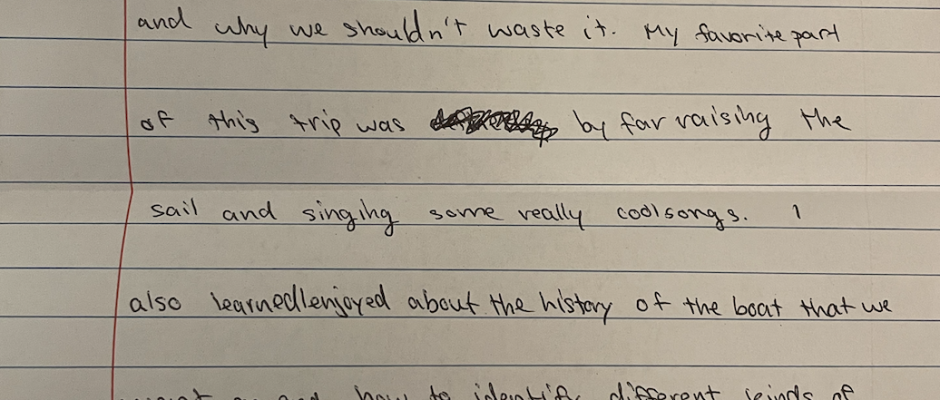 and why we shouldn't waste it. My favorite part
of this trip was by far raising the
sail and singing some really cool songs. I
also learned/enjoyed about the history of the boat that we
how to identify different kinds of